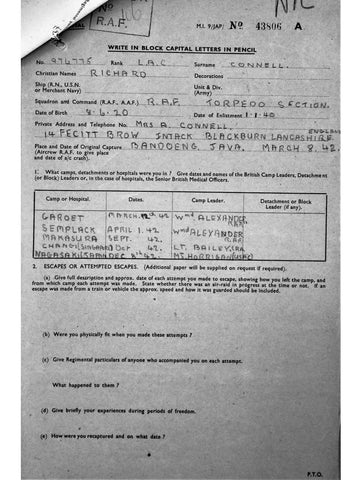 NIL
No
R.A.F.
M.I. 9/JAP/ No 43806 A
WRITE IN BLOCK CAPITAL LETTERS IN PENCIL
No. 974775 Rank L.A.C. Surname CONNELL.
Christian Names RICHARD Decorations
Ship (R.N., U.S.N. or Merchant Navy) Unit & Div. (Army)
Squadron and Command (R.A.F., A.A.F.) R.A.F. TORPEDO SECTION.
Date of Birth 8.6.20 Date of Enlistment 1.1.40
Private Address and Telephone No. MRS A. CONNELL.
14 FECITT BROW INTACK BLACKBURN LANCASHIRE. ENGLAND
Place and Date of Original Capture BANDOENG, JAVA. MARCH 8. 42.
(Aircrew R.A.F. to give place
and date of a/c crash).
1. What camps, detachments or hospitals were you in ? Give dates and names of the British Camp Leaders, Detachment
(or Block) Leaders or, in the case of hospitals, the Senior British Medical Officers.
Camp or Hospital. Dates. Camp Leader. Detachment or Block Leader (if any).
GAROET MARCH. 42 W ALEXANDER (RAF)
SEMPLACK APRIL 1. 42
MAKASURA SEPT. 42. W ALEXANDER (RAF)
CHANGI (SINGAPORE) OCT 42. LT. BAILEY
NAGASAKI DEC 42 HORRIGAN
2. ESCAPES OR ATTEMPTED ESCAPES. (Additional paper will be supplied on request if required).
(a) Give full description and approx. date of each attempt you made to escape, showing how you left the camp, and
from which camp each attempt was made. State whether there was an air-raid in progress at the time or not. If an
escape was made from a train or vehicle the approx. speed and how it was guarded should be included.
(b) Were you physically fit when you made these attempts ?
(c) Give Regimental particulars of anyone who accompanied you on each attempt.
What happened to them ?
(d) Give briefly your experiences during periods of freedom.
(e) How were you recaptured and on what date ?
P.T.O.